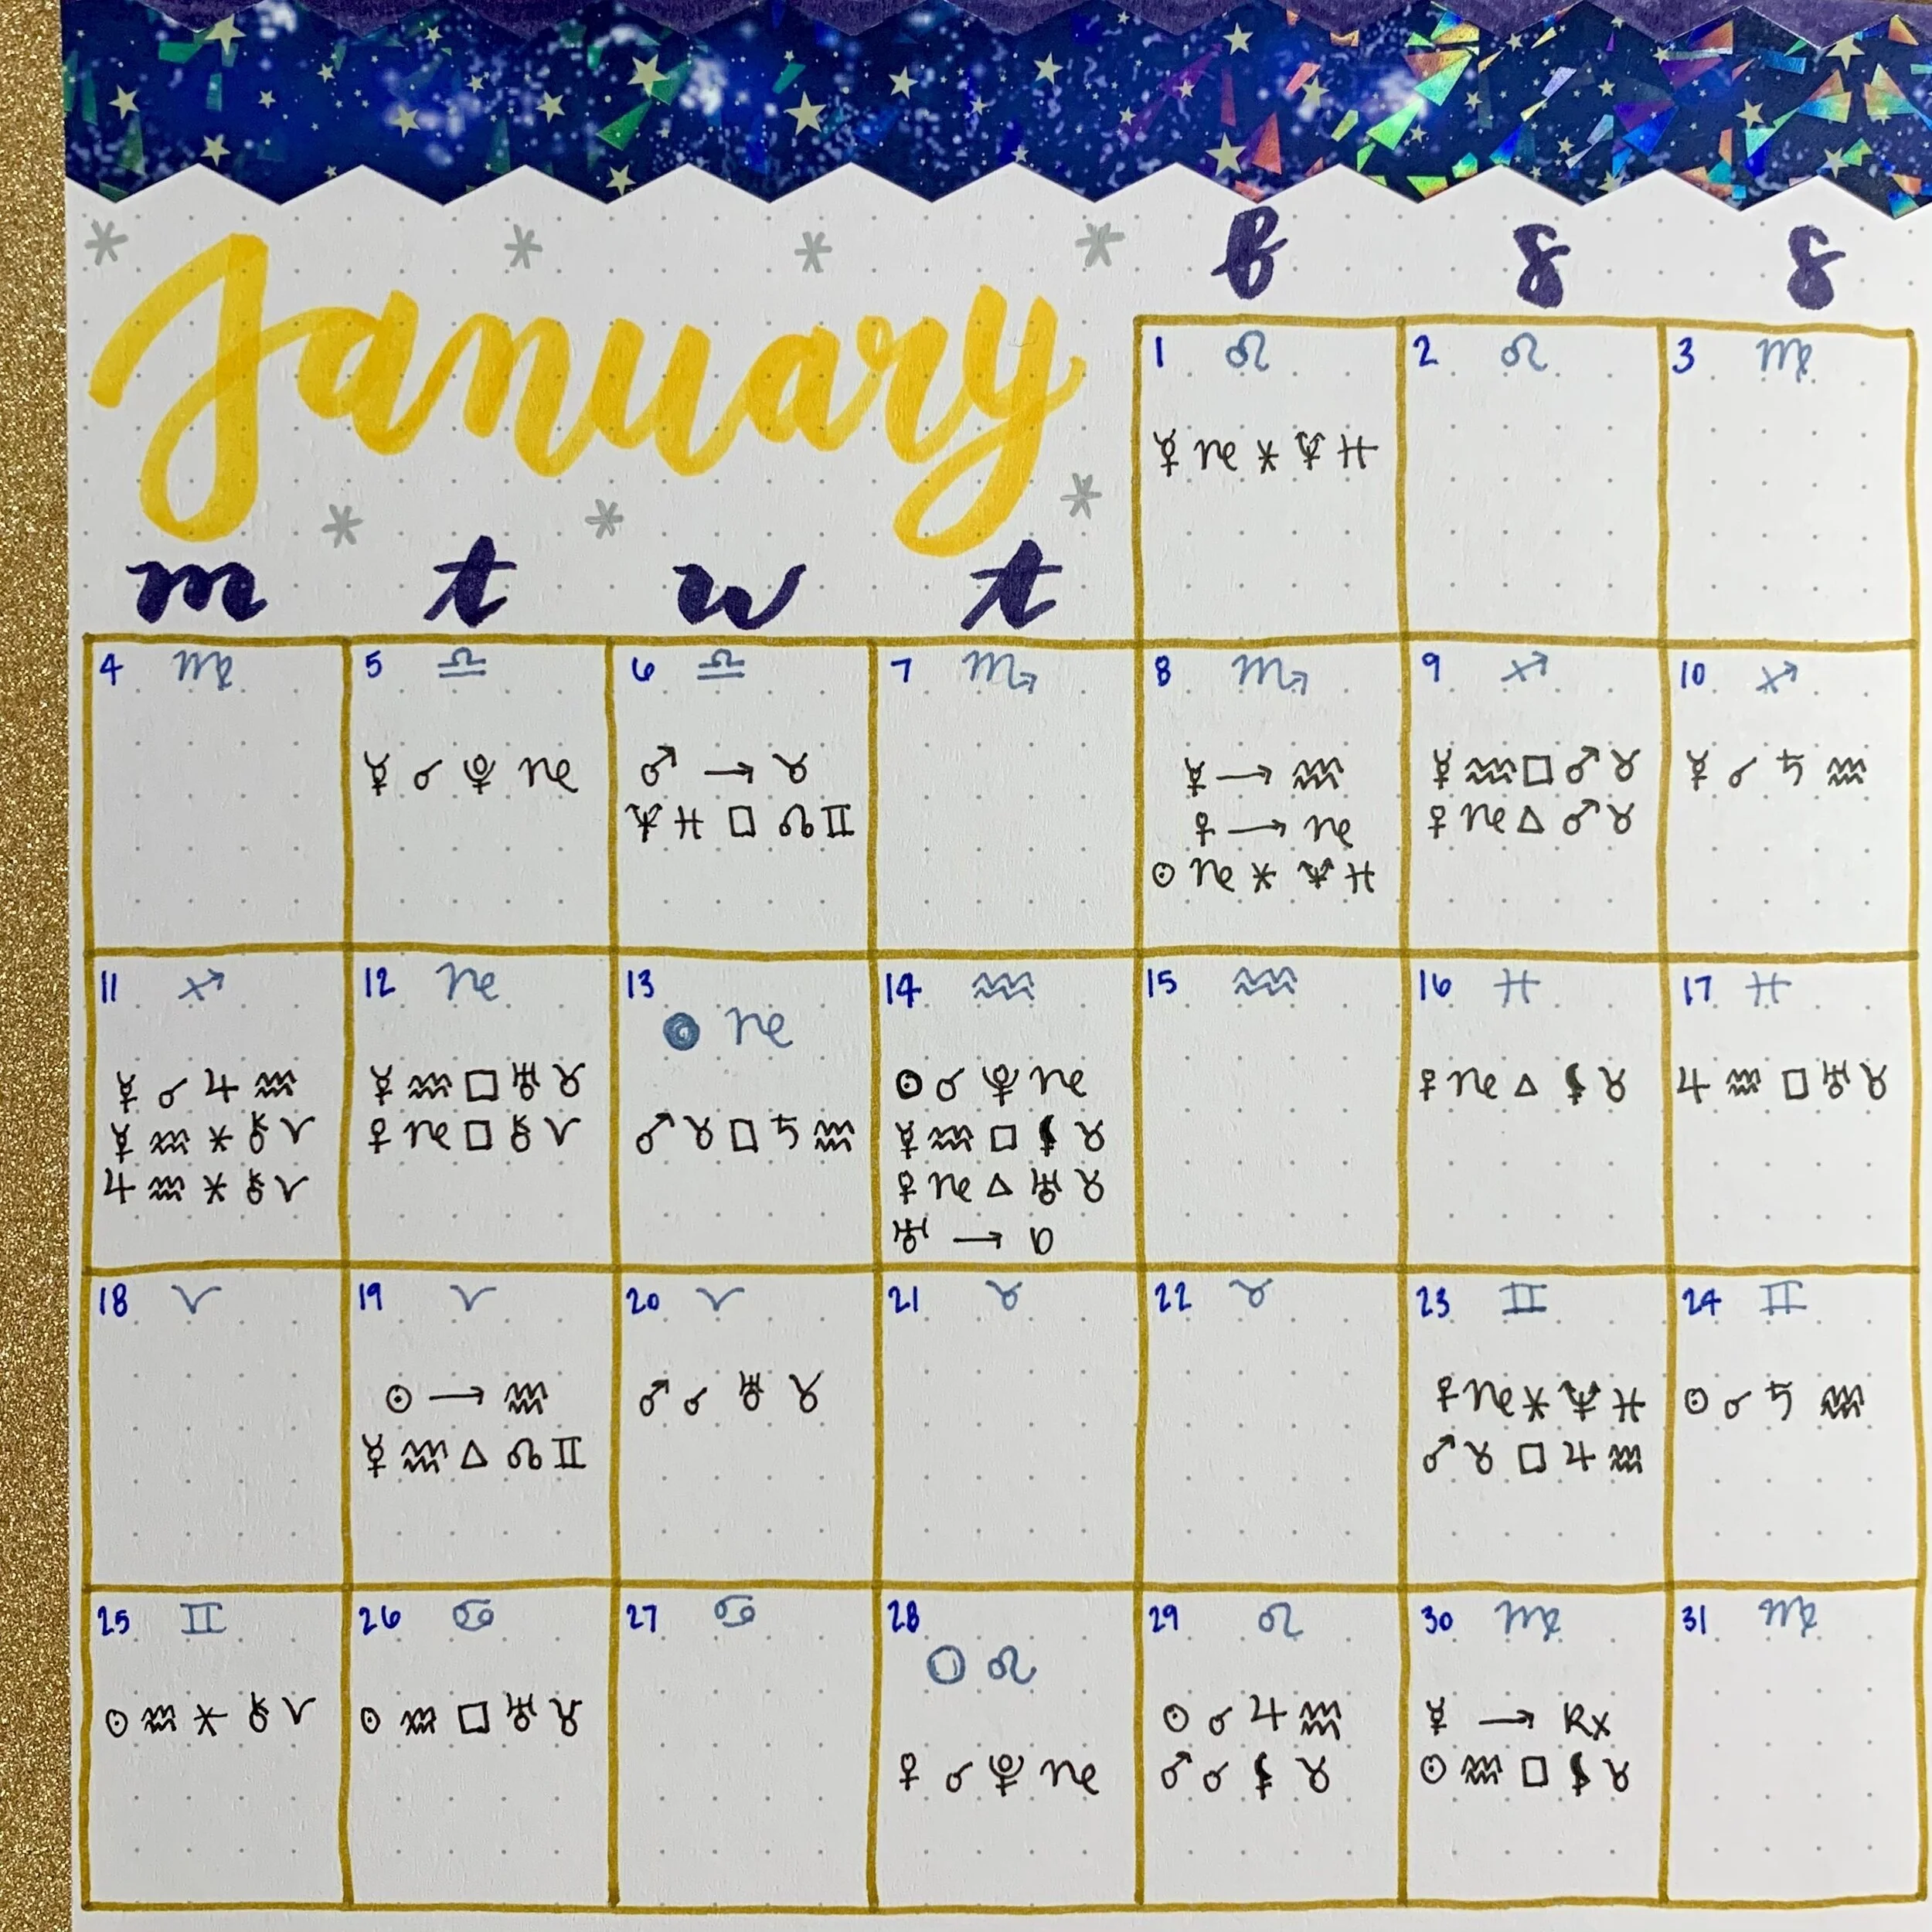 January
f s s
1 ♌
☿ ♑ ⚹ ♆ ♓
2 ♌
3 ♍
m t w t
4 ♍
5 ♎
☿ ☌ ♇ ♑
6 ♎
♂ → ♉
♆ ♓ □ ☊ ♊
7 ♏
8 ♏
☿ → ♒
♀ → ♑
☉ ♑ ⚹ ♆ ♓
9 ♐
☿ ♒ □ ♂ ♉
♀ ♑ △ ♂ ♉
10 ♐
☿ ☌ ♄ ♒
11 ♐
☿ ☌ ♃ ♒
☿ ♒ ⚹ ⚷ ♈
♃ ♒ ⚹ ⚷ ♈
12 ♑
☿ ♒ □ ♅ ♉
♀ ♑ □ ⚷ ♈
13
● ♑
♂ ♉ □ ♄ ♒
14 ♒
☉ ☌ ♇ ♑
☿ ♒ □ ⚸ ♉
♀ ♑ △ ♅ ♉
♅ → D
15 ♒
16 ♓
♀ ♑ △ ⚸ ♉
17 ♓
♃ ♒ □ ♅ ♉
18 ♈
19 ♈
☉ → ♒
☿ ♒ △ ☊ ♊
20 ♈
♂ ☌ ♅ ♉
21 ♉
22 ♉
23 ♊
♀ ♑ ⚹ ♆ ♓
♂ ♉ □ ♃ ♒
24 ♊
☉ ☌ ♄ ♒
25 ♊
☉ ♒ ⚹ ⚷ ♈
26 ♋
☉ ♒ □ ♅ ♉
27 ♋
28
○ ♌
♀ ☌ ♇ ♑
29 ♌
☉ ☌ ♃ ♒
♂ ☌ ⚸ ♉
30 ♍
☿ → Rx
☉ ♒ □ ⚸ ♉
31 ♍